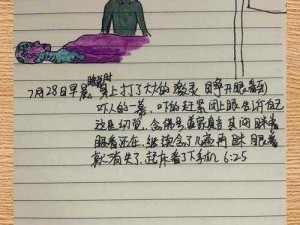 睡觉时
7月28日早晨 身上打了大大的激灵 睁开眼看到
吓人的一幕,吓的赶紧闭上眼告诉自己
这是幻觉,念佛号,道家真言 其间眯着
眼看还在,继续念了几遍再眯眼看
就消失了,起床看了下手机 6:25